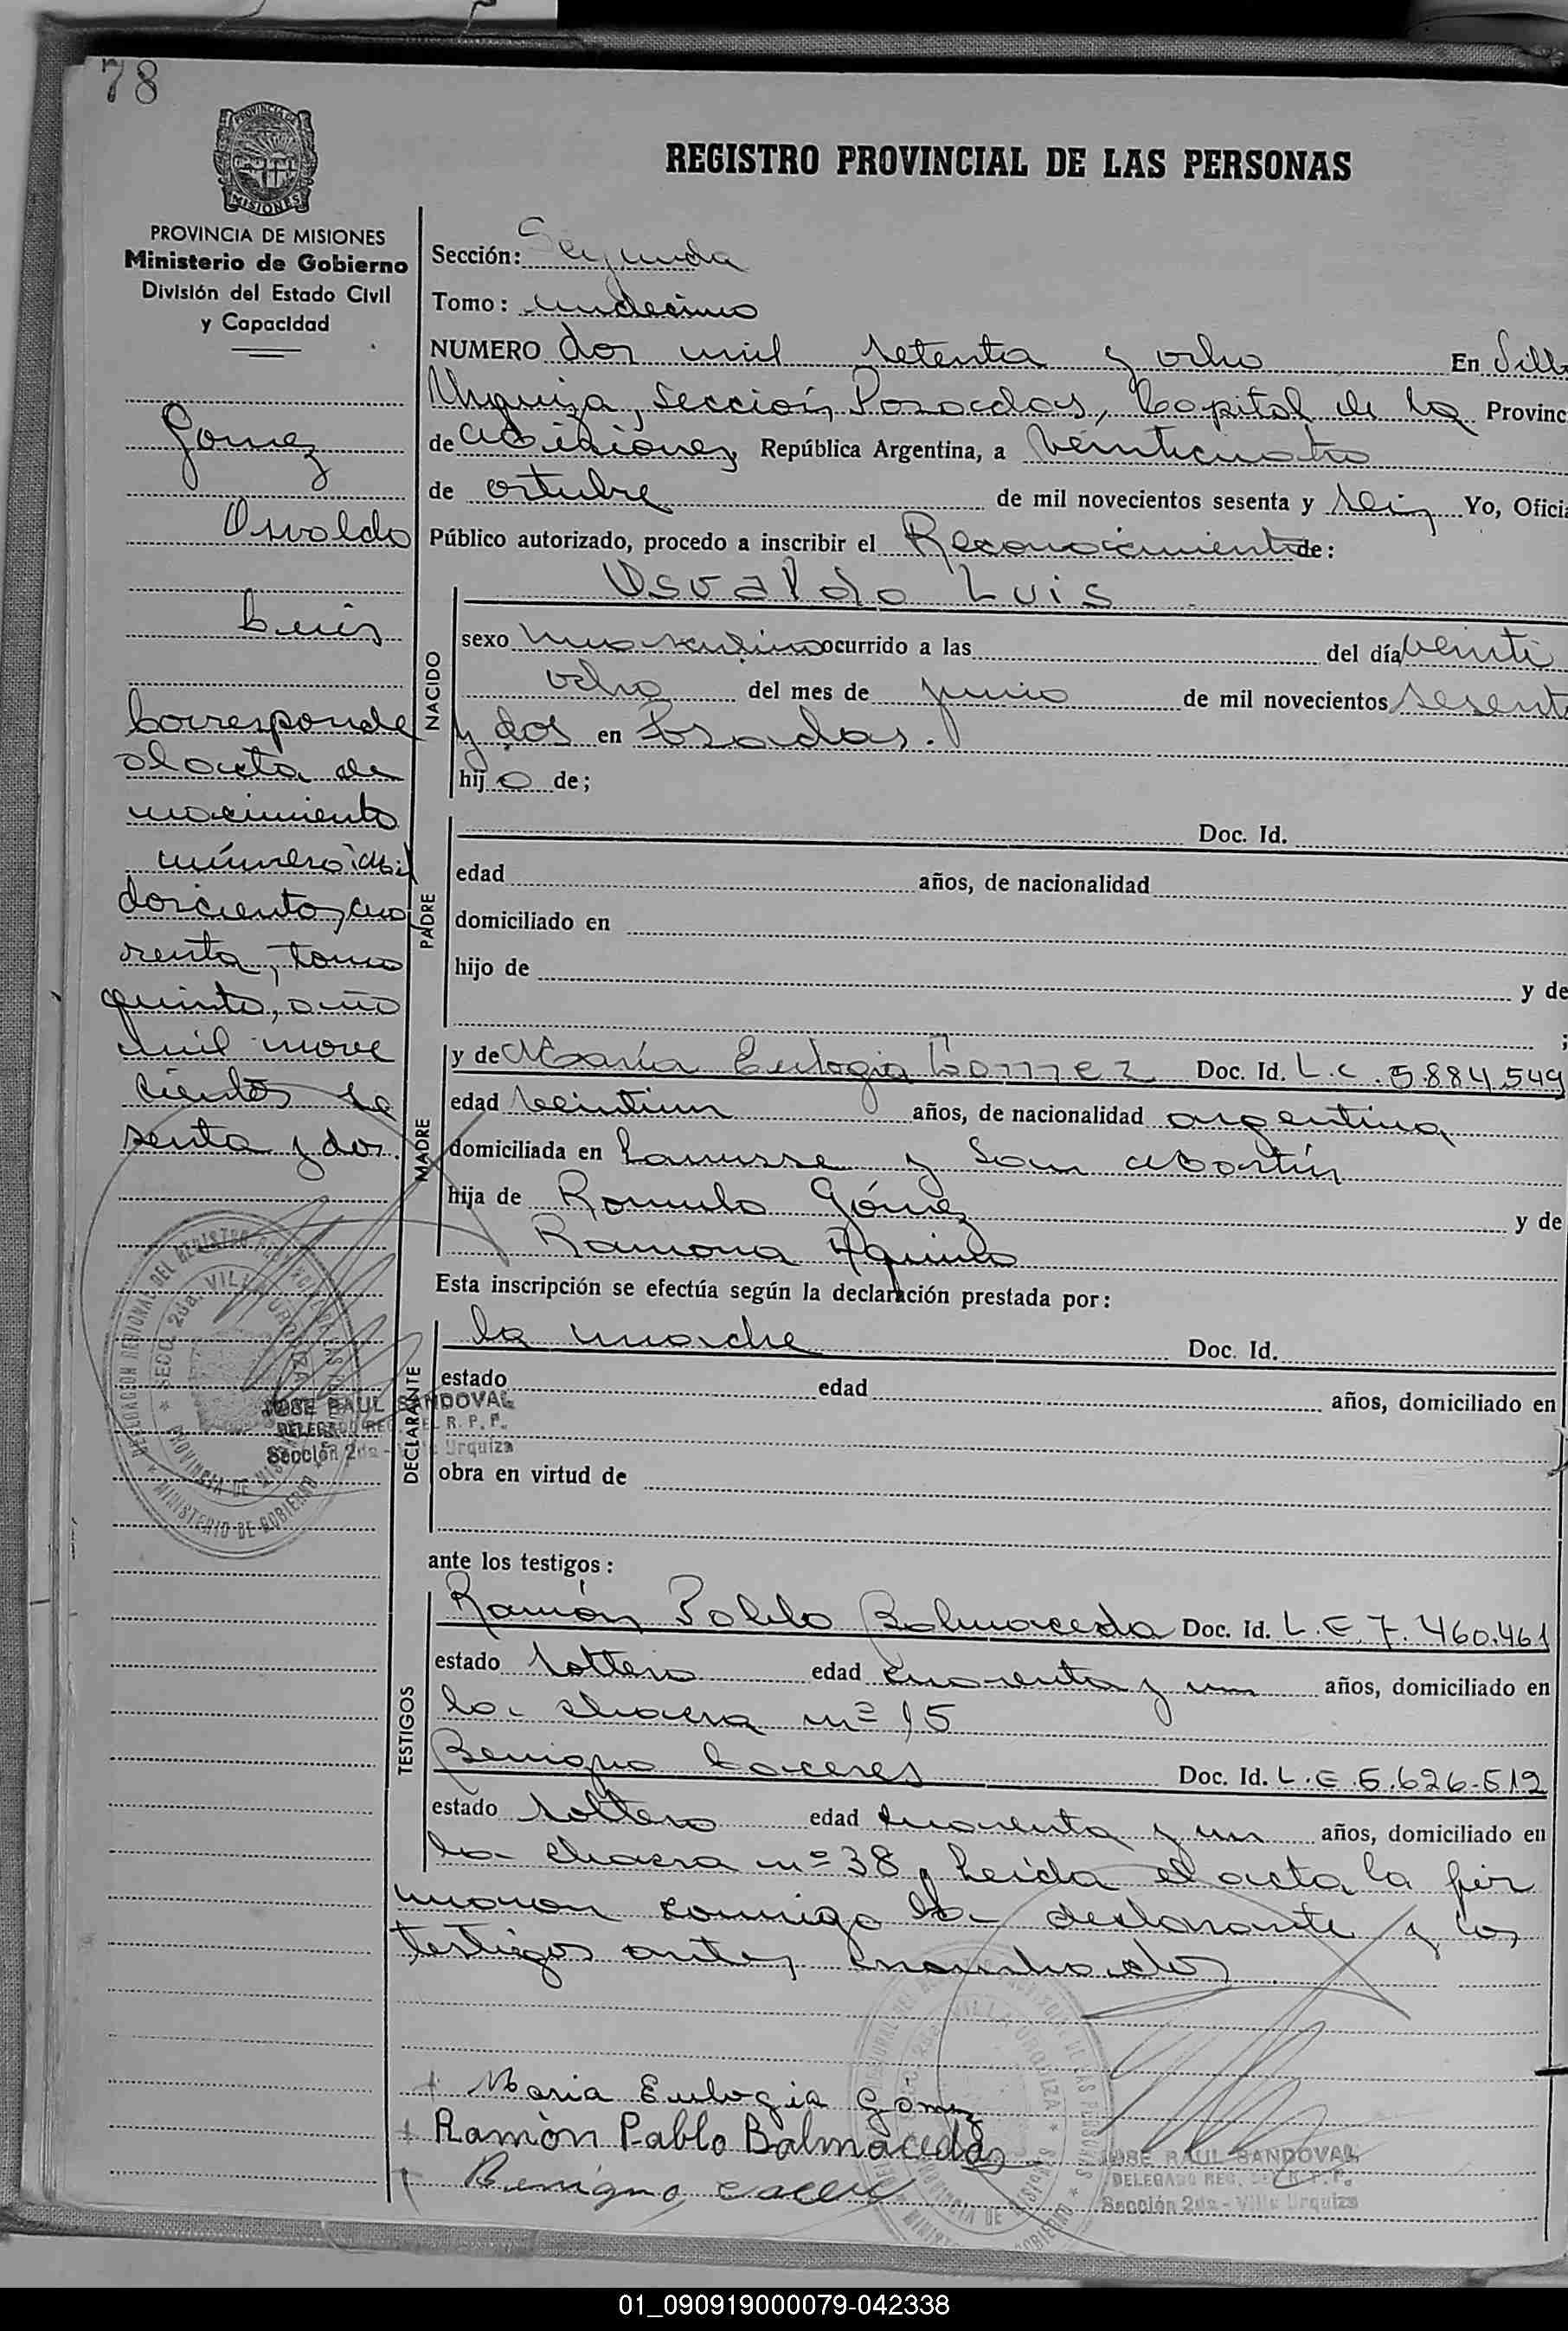 78
PROVINCIA DE
MISIONES
REGISTRO PROVINCIAL DE LAS PERSONAS
PROVINCIA DE MISIONES
Ministerio de Gobierno
División del Estado Civil
y Capacidad
Gomez
Osvaldo
Luis
Corresponde
al acta de
nacimiento
número Mil
doscientos cua
renta, tomo
quinto, año
mil nove
cientos se
senta y dos.
Sección: Segunda
Tomo: undecimo
NUMERO dos mil setenta y ocho En Villa
Urquiza, Sección Posadas, Capital de la Provinc
de Misiones, República Argentina, a veinticuatro
de octubre de mil novecientos sesenta y seis Yo, Oficia
Público autorizado, procedo a inscribir el Reconocimiento de:
Osvaldo Luis
NACIDO
sexo masculino ocurrido a las del día veinti
ocho del mes de junio de mil novecientos sesent
y dos en Posadas.
hijo de;
PADRE
Doc. Id.
edad años, de nacionalidad
domiciliado en
hijo de y de
;
MADRE
y de María Eulogia Gomez Doc. Id. L.C. 5.884.549
edad veintiun años, de nacionalidad argentina
domiciliada en Lanusse y San Martín
hija de Romulo Gómez y de
Ramona Aquino
Esta inscripción se efectúa según la declaración prestada por:
DECLARANTE
la madre Doc. Id.
estado edad años, domiciliado en
obra en virtud de
JOSE RAUL SANDOVAL
DELEGADO REG. DEL R. P. P.
Sección 2da - Villa Urquiza
ante los testigos:
TESTIGOS
Ramón Pablo Balmaceda Doc. Id. L.E. 7.460.461
estado soltero edad cuarenta y un años, domiciliado en
la chacra nº 15
Benigno Caceres Doc. Id. L.E. 5.626.512
estado soltero edad cuarenta y un años, domiciliado en
la chacra nº 38, Leida el acta la fir
maron conmigo la declarante y los
testigos antes nombrados
Maria Eulogia Gómez
Ramón Pablo Balmaceda
Benigno Caceres
JOSE RAUL SANDOVAL
DELEGADO REG. DEL R. P. P.
Sección 2da - Villa Urquiza
01_090919000079-042338